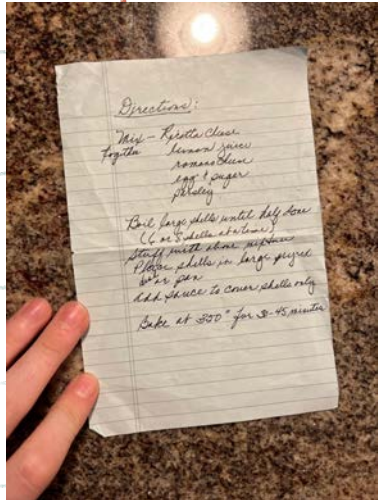 Directions:
Mix - Ricotta Cheese
Together lemon juice
romano cheese
egg & sugar
parsley
Boil large shells until half done
(6 or 8 shells at a time)
Stuff with above mixture
Place shells in large
or pan
Add sauce to cover shells only
Bake at 350° for 30-45 minutes